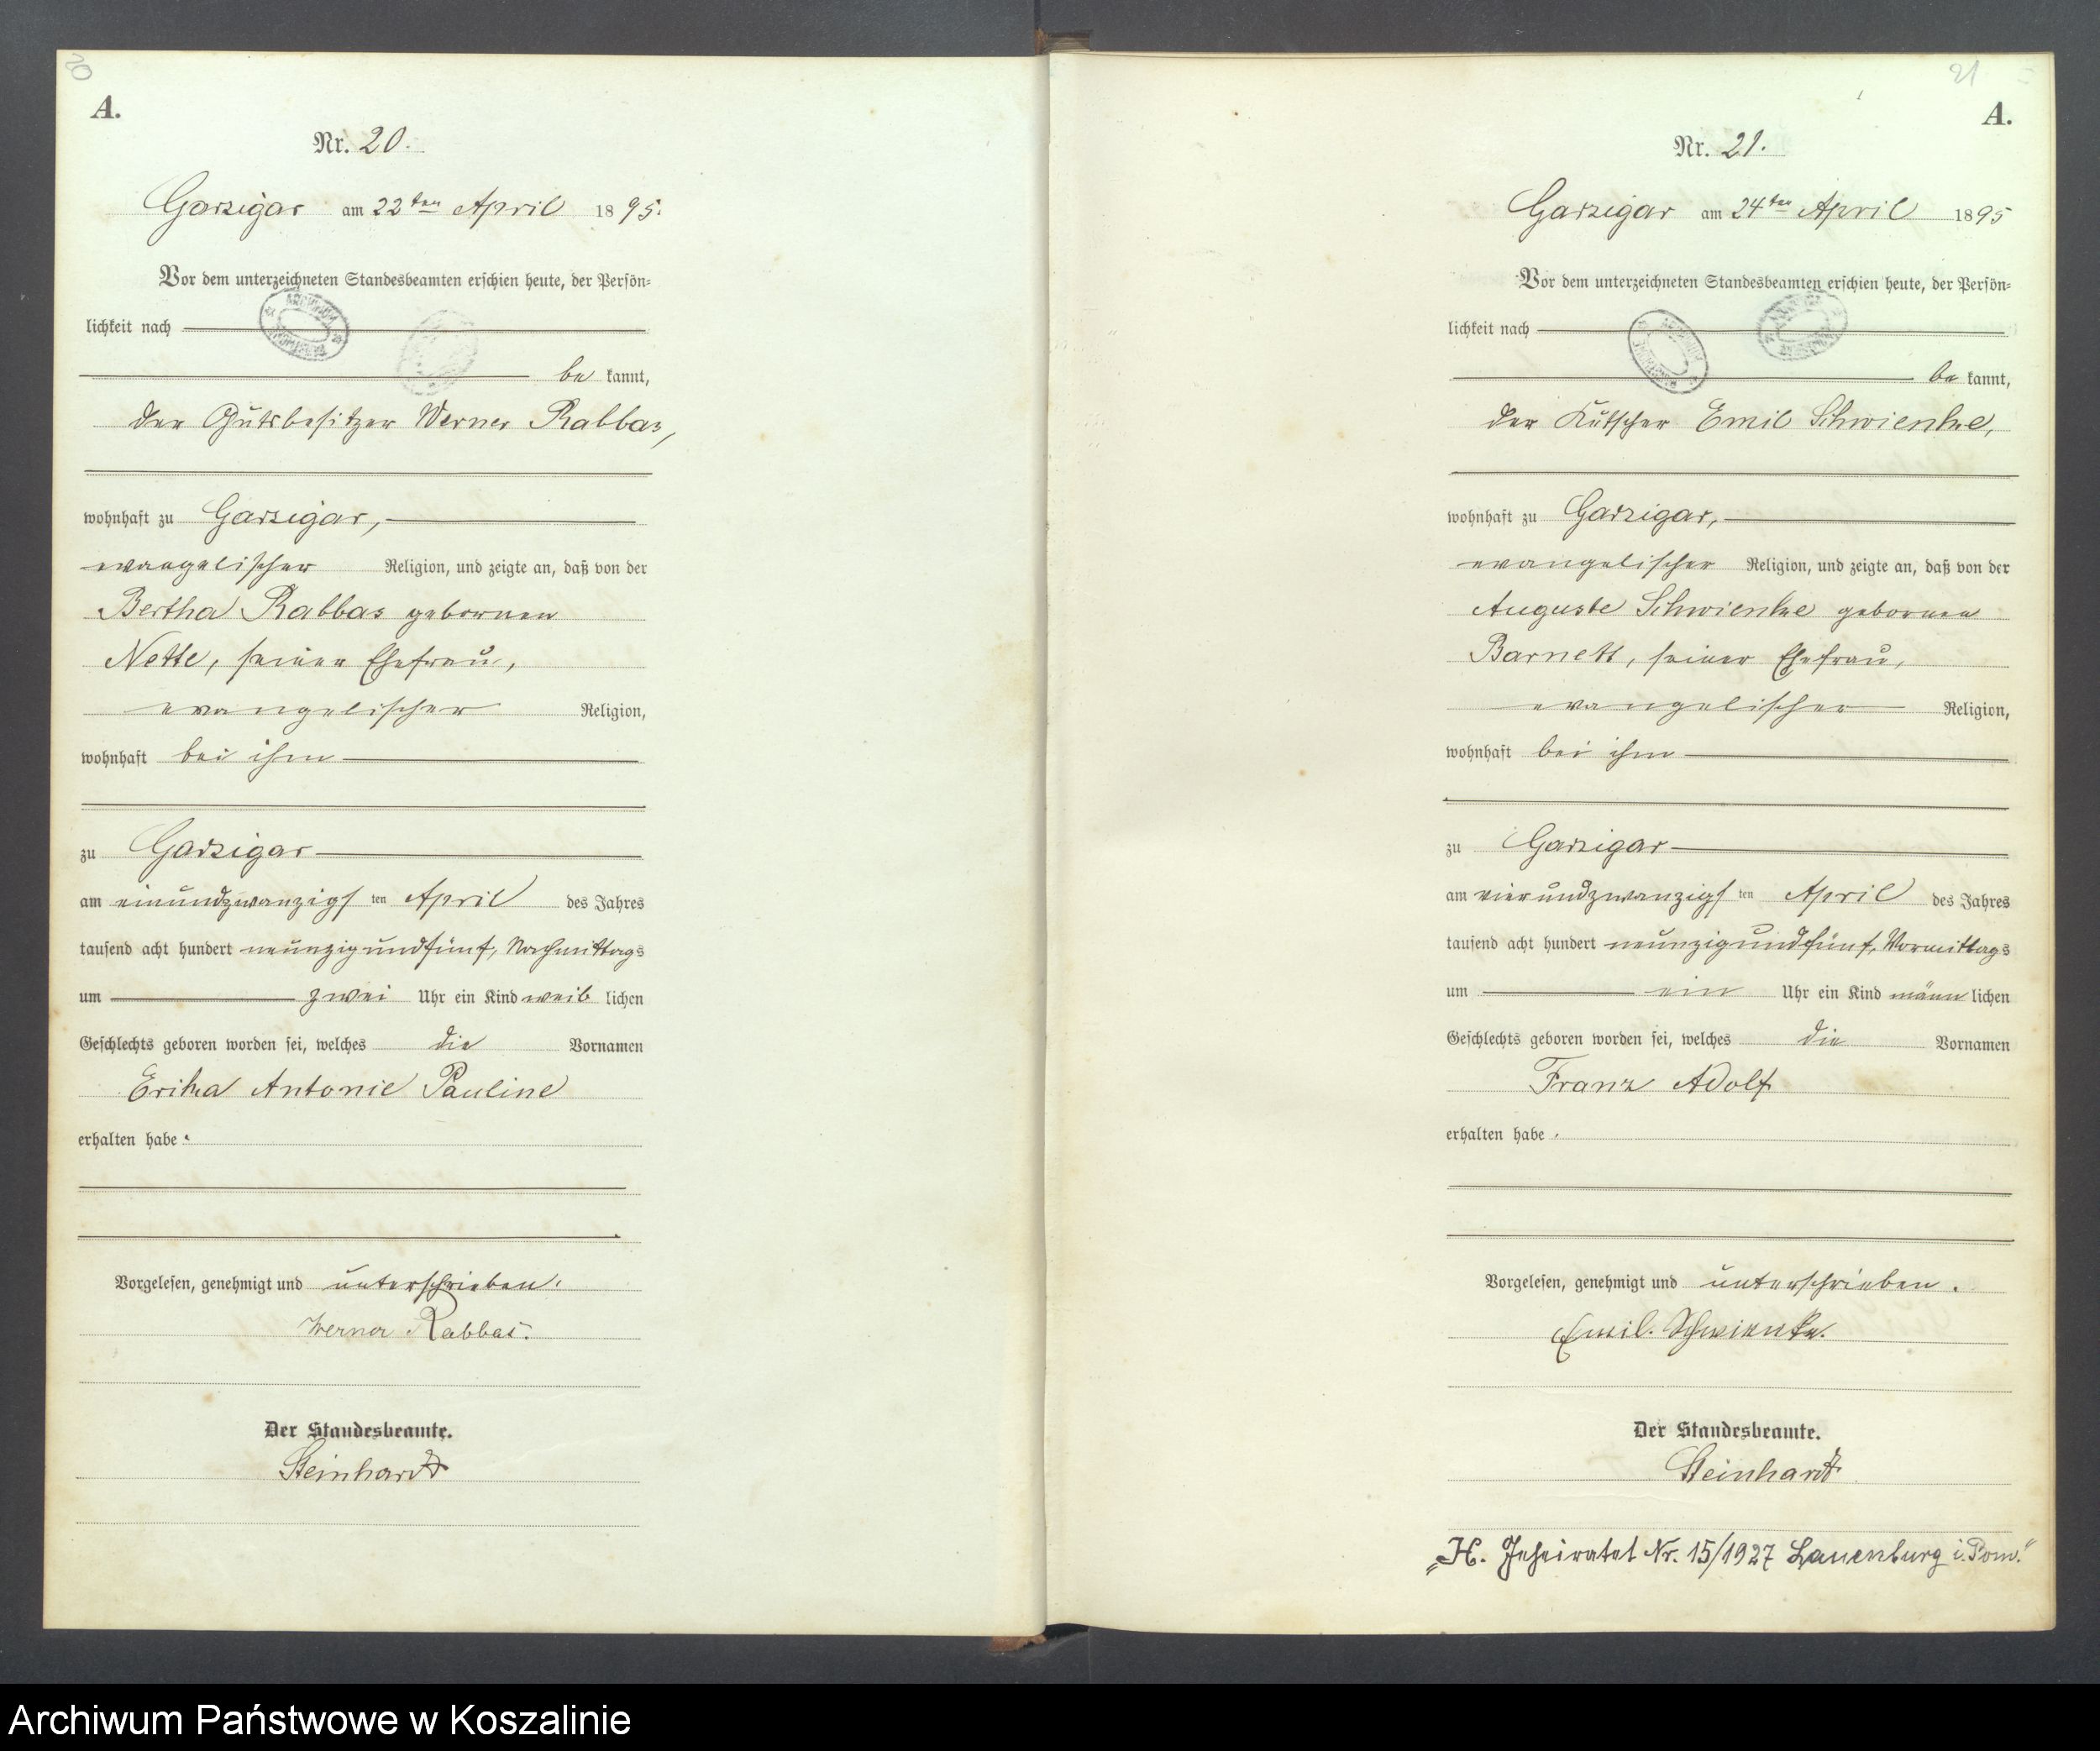 20
A.
Nr. 20.
Garzigar am 22ten April 1895.
Vor dem unterzeichneten Standesbeamten erschien heute, der Persön-
lichkeit nach
be kannt,
der Gutsbesitzer Werner Rabbas,
wohnhaft zu Garzigar,
evangelischer Religion, und zeigte an, daß von der
Bertha Rabbas gebornen
Nette, seiner Ehefrau,
evangelischer Religion,
wohnhaft bei ihm
zu Garzigar
am einundzwanzigsten April des Jahres
tausend acht hundert neunzigundfünf, Nachmittags
um zwei Uhr ein Kind weiblichen
Geschlechts geboren worden sei, welches die Vornamen
Erika Antonie Pauline
erhalten habe.
Vorgelesen, genehmigt und unterschrieben.
Werner Rabbas.
Der Standesbeamte.
Steinhardt
21
A.
Nr. 21.
Garzigar am 24ten April 1895
Vor dem unterzeichneten Standesbeamten erschien heute, der Persön-
lichkeit nach
be kannt,
der Kutscher Emil Schwienke,
wohnhaft zu Garzigar,
evangelischer Religion, und zeigte an, daß von der
Auguste Schwienke gebornen
Barnett, seiner Ehefrau,
evangelischer Religion,
wohnhaft bei ihm
zu Garzigar
am vierundzwanzigsten April des Jahres
tausend acht hundert neunzigundfünf, Vormittags
um ein Uhr ein Kind männlichen
Geschlechts geboren worden sei, welches die Vornamen
Franz Adolf
erhalten habe.
Vorgelesen, genehmigt und unterschrieben.
Emil. Schwienke.
Der Standesbeamte.
Steinhardt
„H. Geheiratet Nr. 15/1927 Lauenburg i. Pom."
Archiwum Państwowe w Koszalinie